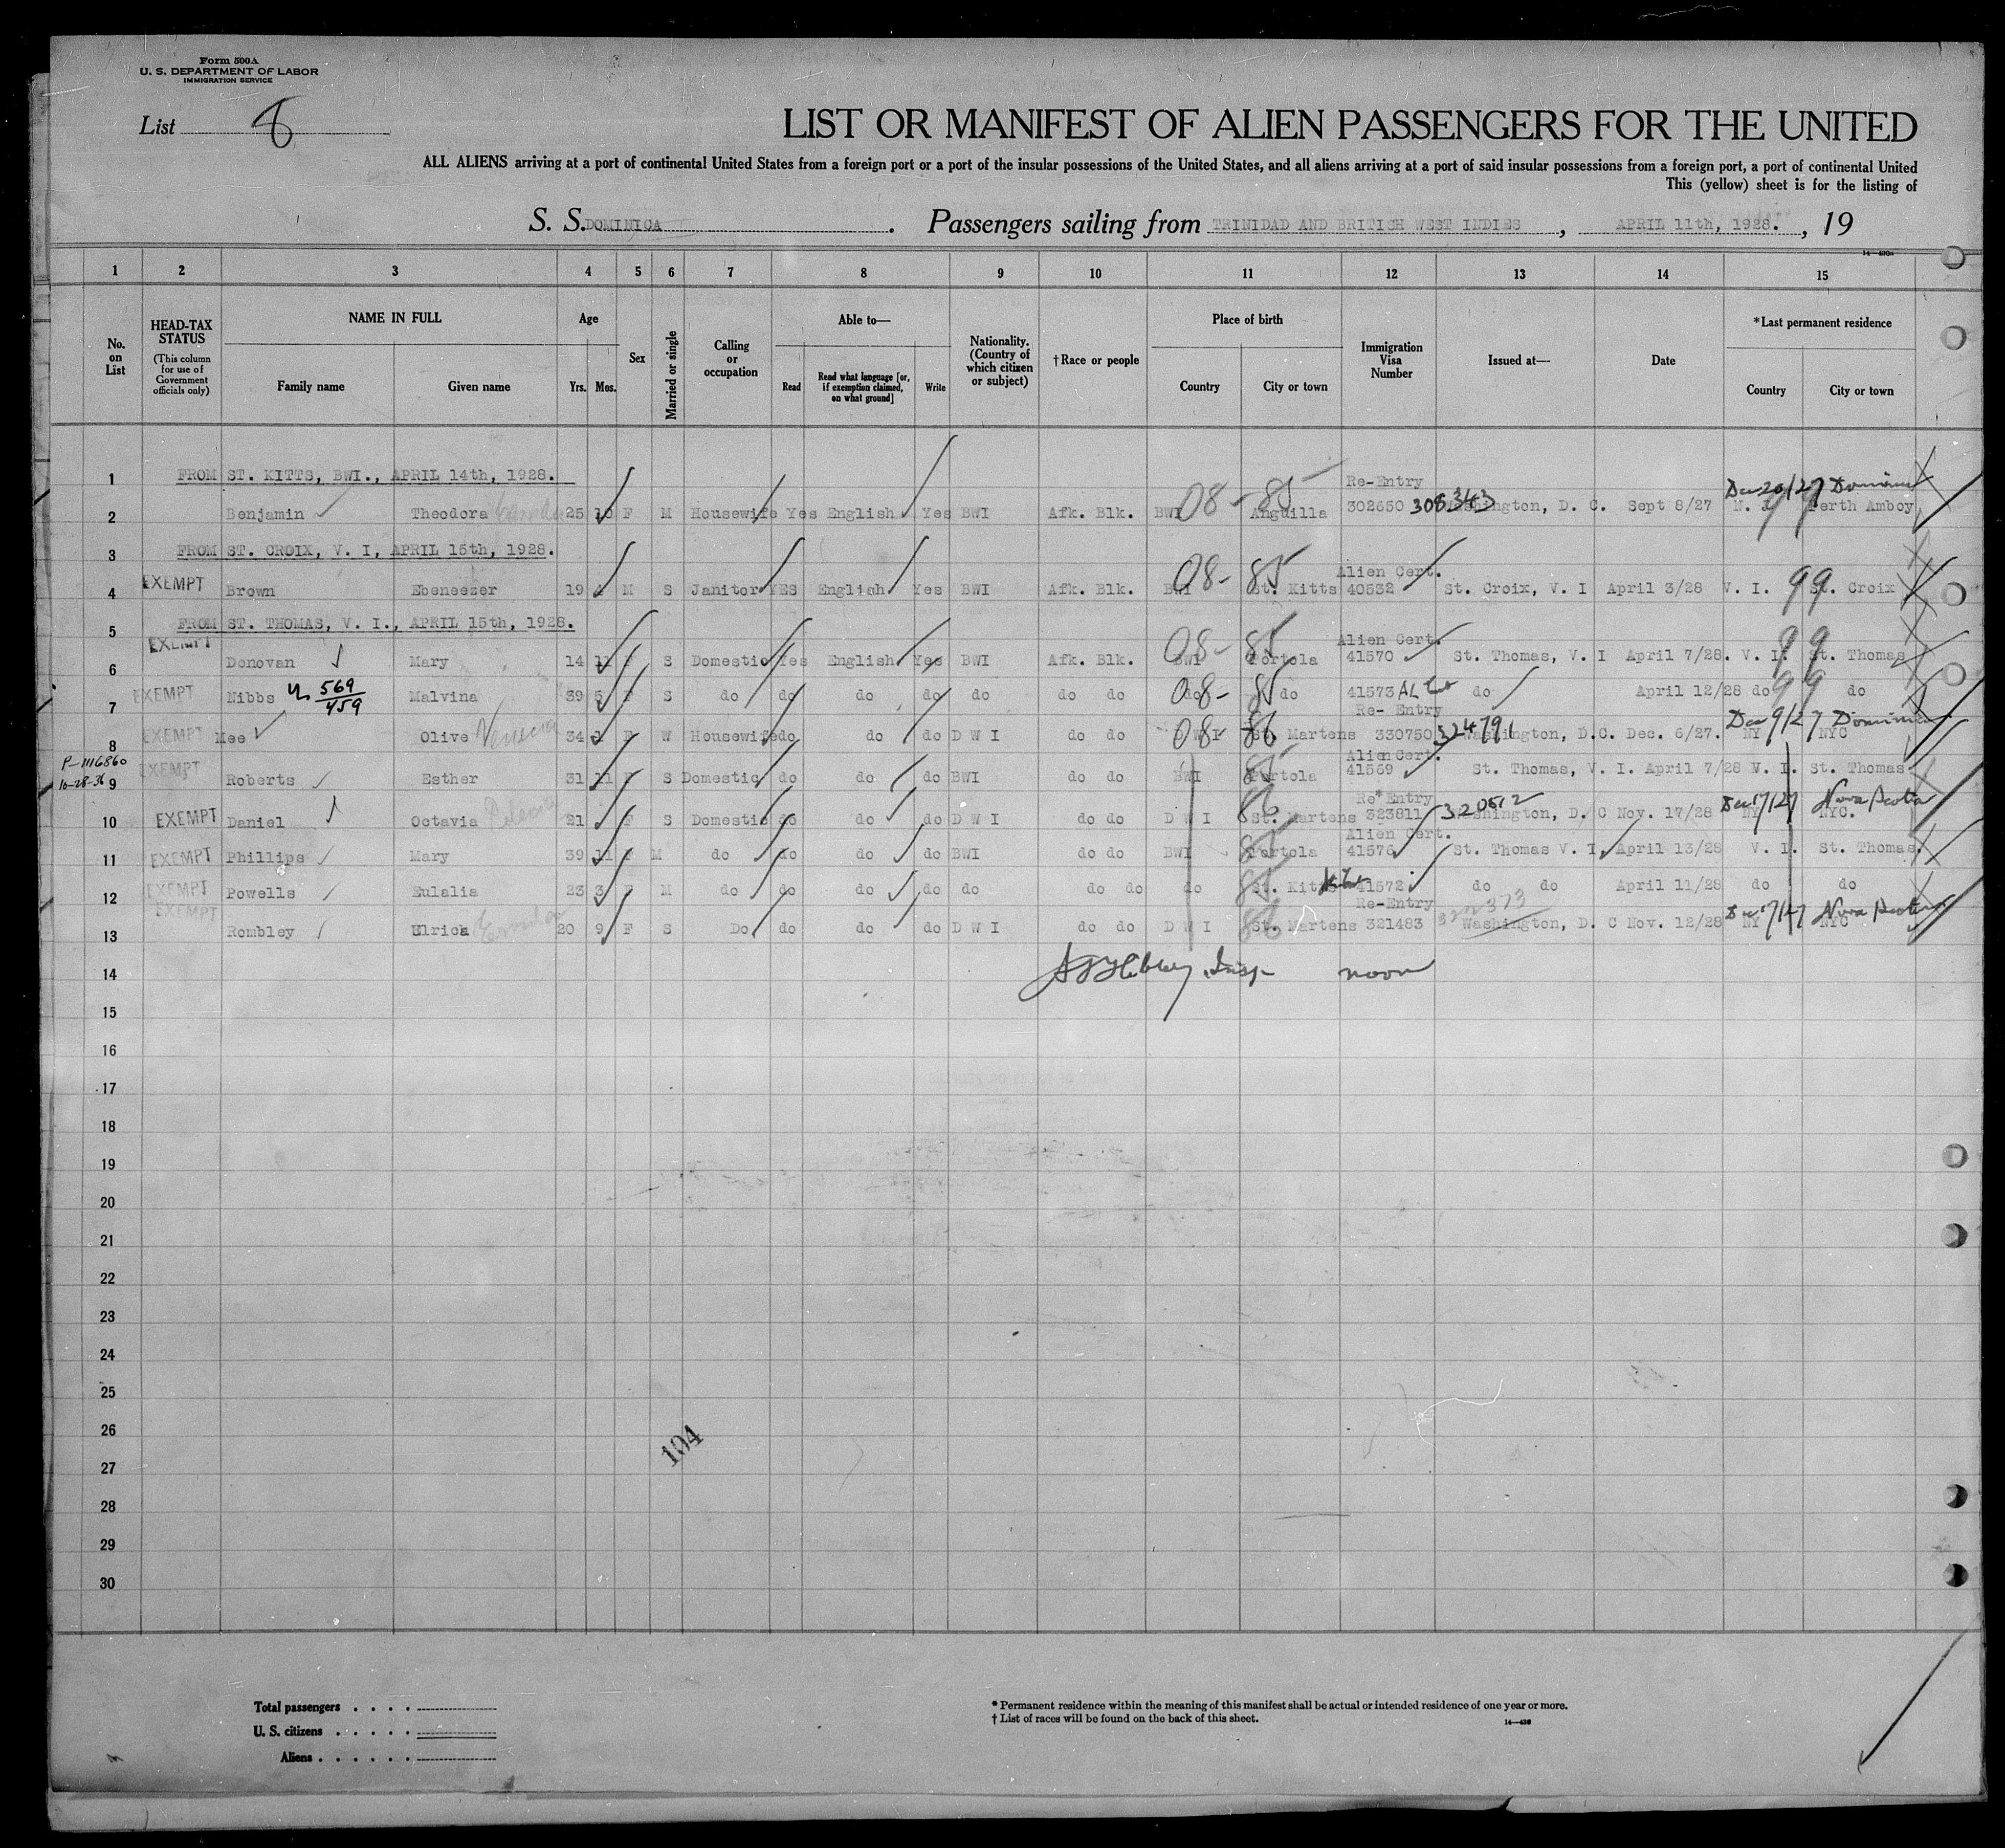 Form 500A
U. S. DEPARTMENT OF LABOR
IMMIGRATION SERVICE
List 8
LIST OR MANIFEST OF ALIEN PASSENGERS FOR THE UNITED
ALL ALIENS arriving at a port of continental United States from a foreign port or a port of the insular possessions of the United States, and all aliens arriving at a port of said insular possessions from a foreign port, a port of continental United
This (yellow) sheet is for the listing of
S. S. DOMINICA. Passengers sailing from TRINIDAD AND BRITISH WEST INDIES, APRIL 11th, 1928., 19
14—400a
1 2 3 4 5 6 7 8 9 10 11 12 13 14 15
No. on List
HEAD-TAX STATUS (This column for use of Government officials only)
NAME IN FULL Family name Given name
Age Yrs. Mos.
Sex
Married or single
Calling or occupation
Able to— Read Read what language [or, if exemption claimed, on what ground] Write
Nationality. (Country of which citizen or subject)
†Race or people
Place of birth Country City or town
Immigration Visa Number
Issued at—
Date
*Last permanent residence Country City or town
1 FROM ST. KITTS, BWI., APRIL 14th, 1928.
Re-Entry Dec 20/27
2 Benjamin Theodora 25 10 F M Housewife Yes English Yes BWI Afk. Blk. BWI 08-85 Anguilla 302650 308343 Washington, D. C. Sept 8/27 N. J. Perth Amboy
3 FROM ST. CROIX, V. I, APRIL 15th, 1928.
Alien Cert.
4 EXEMPT Brown Ebeneezer 19 M S Janitor YES English Yes BWI Afk. Blk. BWI 08-85 St. Kitts 40532 St. Croix, V. I April 3/28 V. I. 99 St. Croix
5 FROM ST. THOMAS, V. I., APRIL 15th, 1928.
Alien Cert.
6 EXEMPT Donovan Mary 14 11 F S Domestic Yes English Yes BWI Afk. Blk. BWI 08-85 Tortola 41570 St. Thomas, V. I April 7/28. V. I. 99 St. Thomas
7 EXEMPT Nibbs 569/459 Malvina 39 5 F S do do do do do do do do 08-85 do 41573 do April 12/28 do 99 do
Re- Entry Dec 9/27
8 EXEMPT Mee Olive 34 F W Housewife do do do D W I do do D W I 08-86 St. Martens 330750 Washington, D.C. Dec. 6/27. NY NYC
P-1116860
10-28-36
Alien Cert.
9 EXEMPT Roberts Esther 31 11 F S Domestic do do do BWI do do BWI 85 Tortola 41569 St. Thomas, V. I. April 7/28 V. I. St. Thomas
Re*Entry Nova Scotia
10 EXEMPT Daniel Octavia 21 F S Domestic do do do D W I do do D W I 86 St. Martens 323811 320512 Washington, D. C Nov. 17/28 NY NYC.
Alien Cert.
11 EXEMPT Phillips Mary 39 11 F M do do do do BWI do do BWI 85 Tortola 41576 St. Thomas V. I. April 13/28 V. I. St. Thomas.
12 EXEMPT Powells Eulalia 23 3 F M do do do do do do do do 85 St. Kitts 41572 do do April 11/28 do do
Re-Entry Nova Scotia
13 EXEMPT Rombley Ulrica 20 9 F S Do do do do D W I do do D W I 86 St. Martens 321483 Washington, D. C Nov. 12/28 NY NYC
14 noon
15
16
17
18
19
20
21
22
23
24
25
26
27
28
29
30
104
Total passengers . . . .
U. S. citizens . . . . .
Aliens . . . . . .
* Permanent residence within the meaning of this manifest shall be actual or intended residence of one year or more.
† List of races will be found on the back of this sheet.
14—430